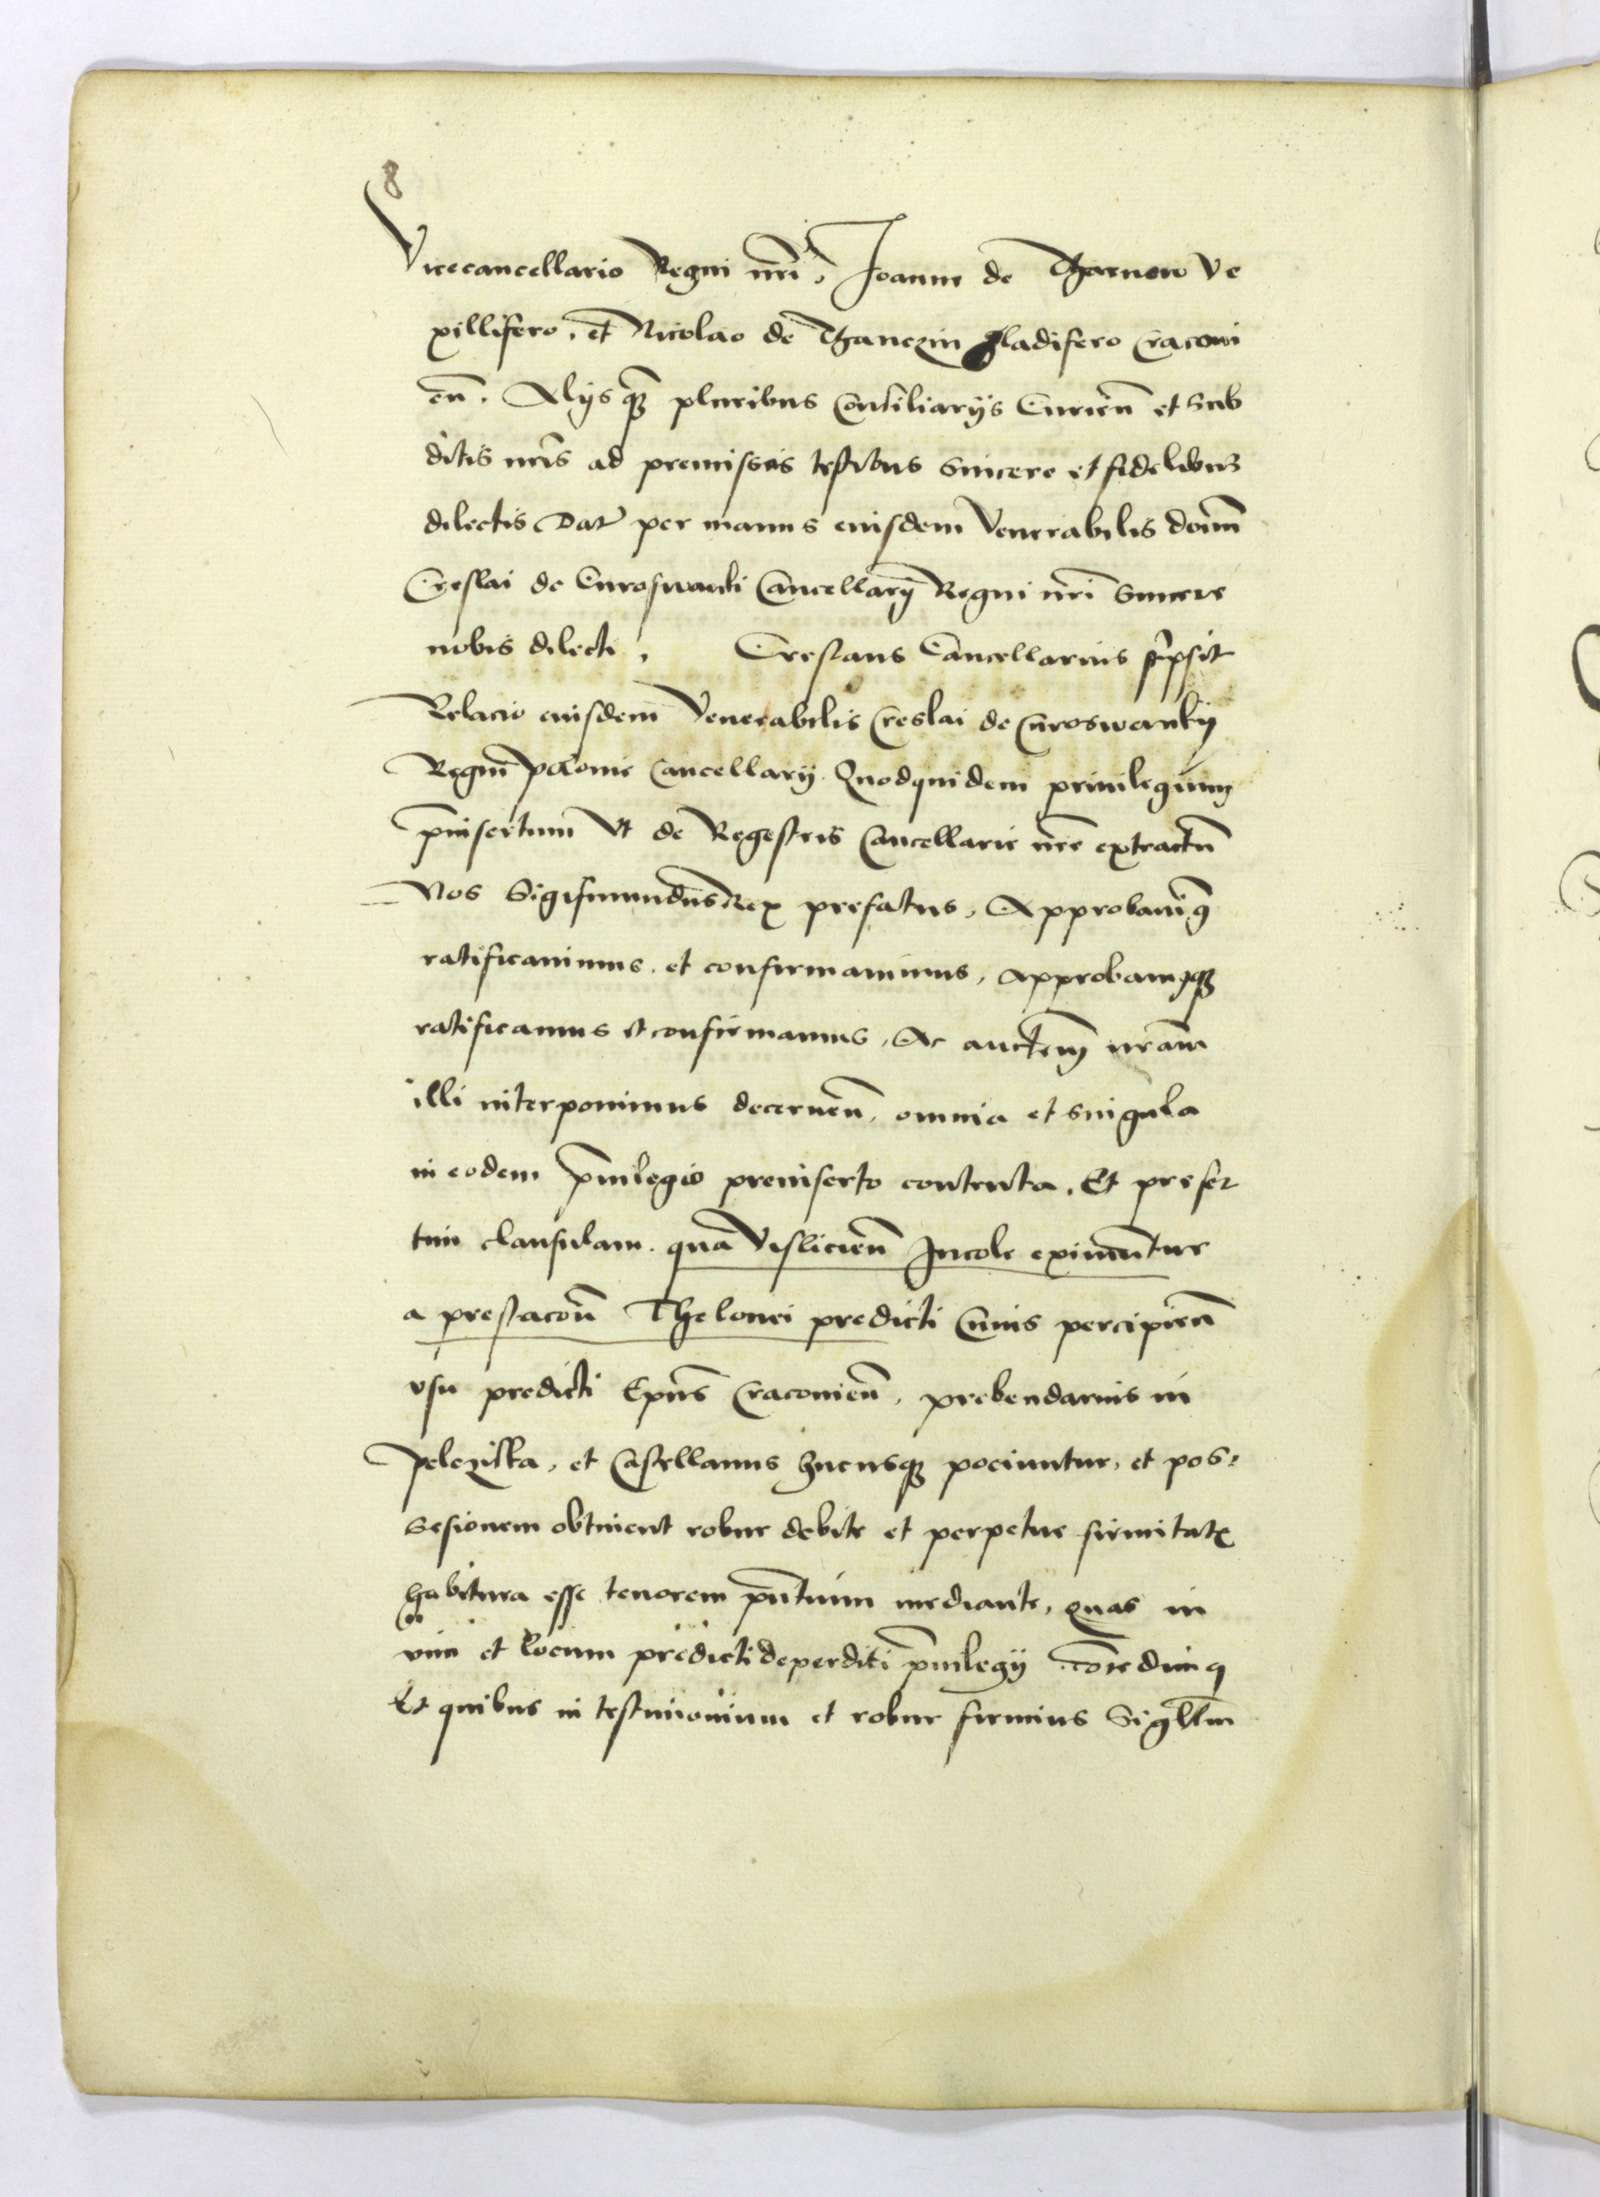 8
Vicecancellario Regni nri, Joanne de Tharnow Ve
xillifero, et Nicolao de Thanczin gladifero Cracovi
en. Alijsq pluribus Consiliarijs Curien et Sub
ditis nris ad premissis testibus Sincere et fidelibus
dilectis Dat per manus eiusdem Venerabilis domini
Creslai de Curoswanki Cancellarij Regni nri Sincere
nobis dilecti, Creslaus Cancellarius scripsit
Relacio eiusdem Venerabilis Creslai de Curoswanky
Regni Polonie Cancellarij. Quodquidem privilegium
preinsertum Vt de Regestris Cancellarie nre extractu
Nos Sigismundus Rex prefatus, Approbavimq
ratificavimus et confirmavimus, approbamusq
ratificamus et confirmamus, Ac auctem nram
illi interponimus decernen, omnia et singula
in eodem privilegio preinserto contenta, Et preser
tim clausulam. qua Vislicien Incole eximuntur
a prestacon Thelonei predicti Cuius percipien
vsu predicti Epus Cracovien, prebendarius in
Pelcziska, et Castellanus hucusq pociuntur, et pos=
sesionem obtinent robur debite et perpetue firmitatis
habitura esse tenorem pntium mediante, quas in
vim et locum predicti deperditi privilegij concedimq
Et quibus in testimonium et robur firmius Sigillum